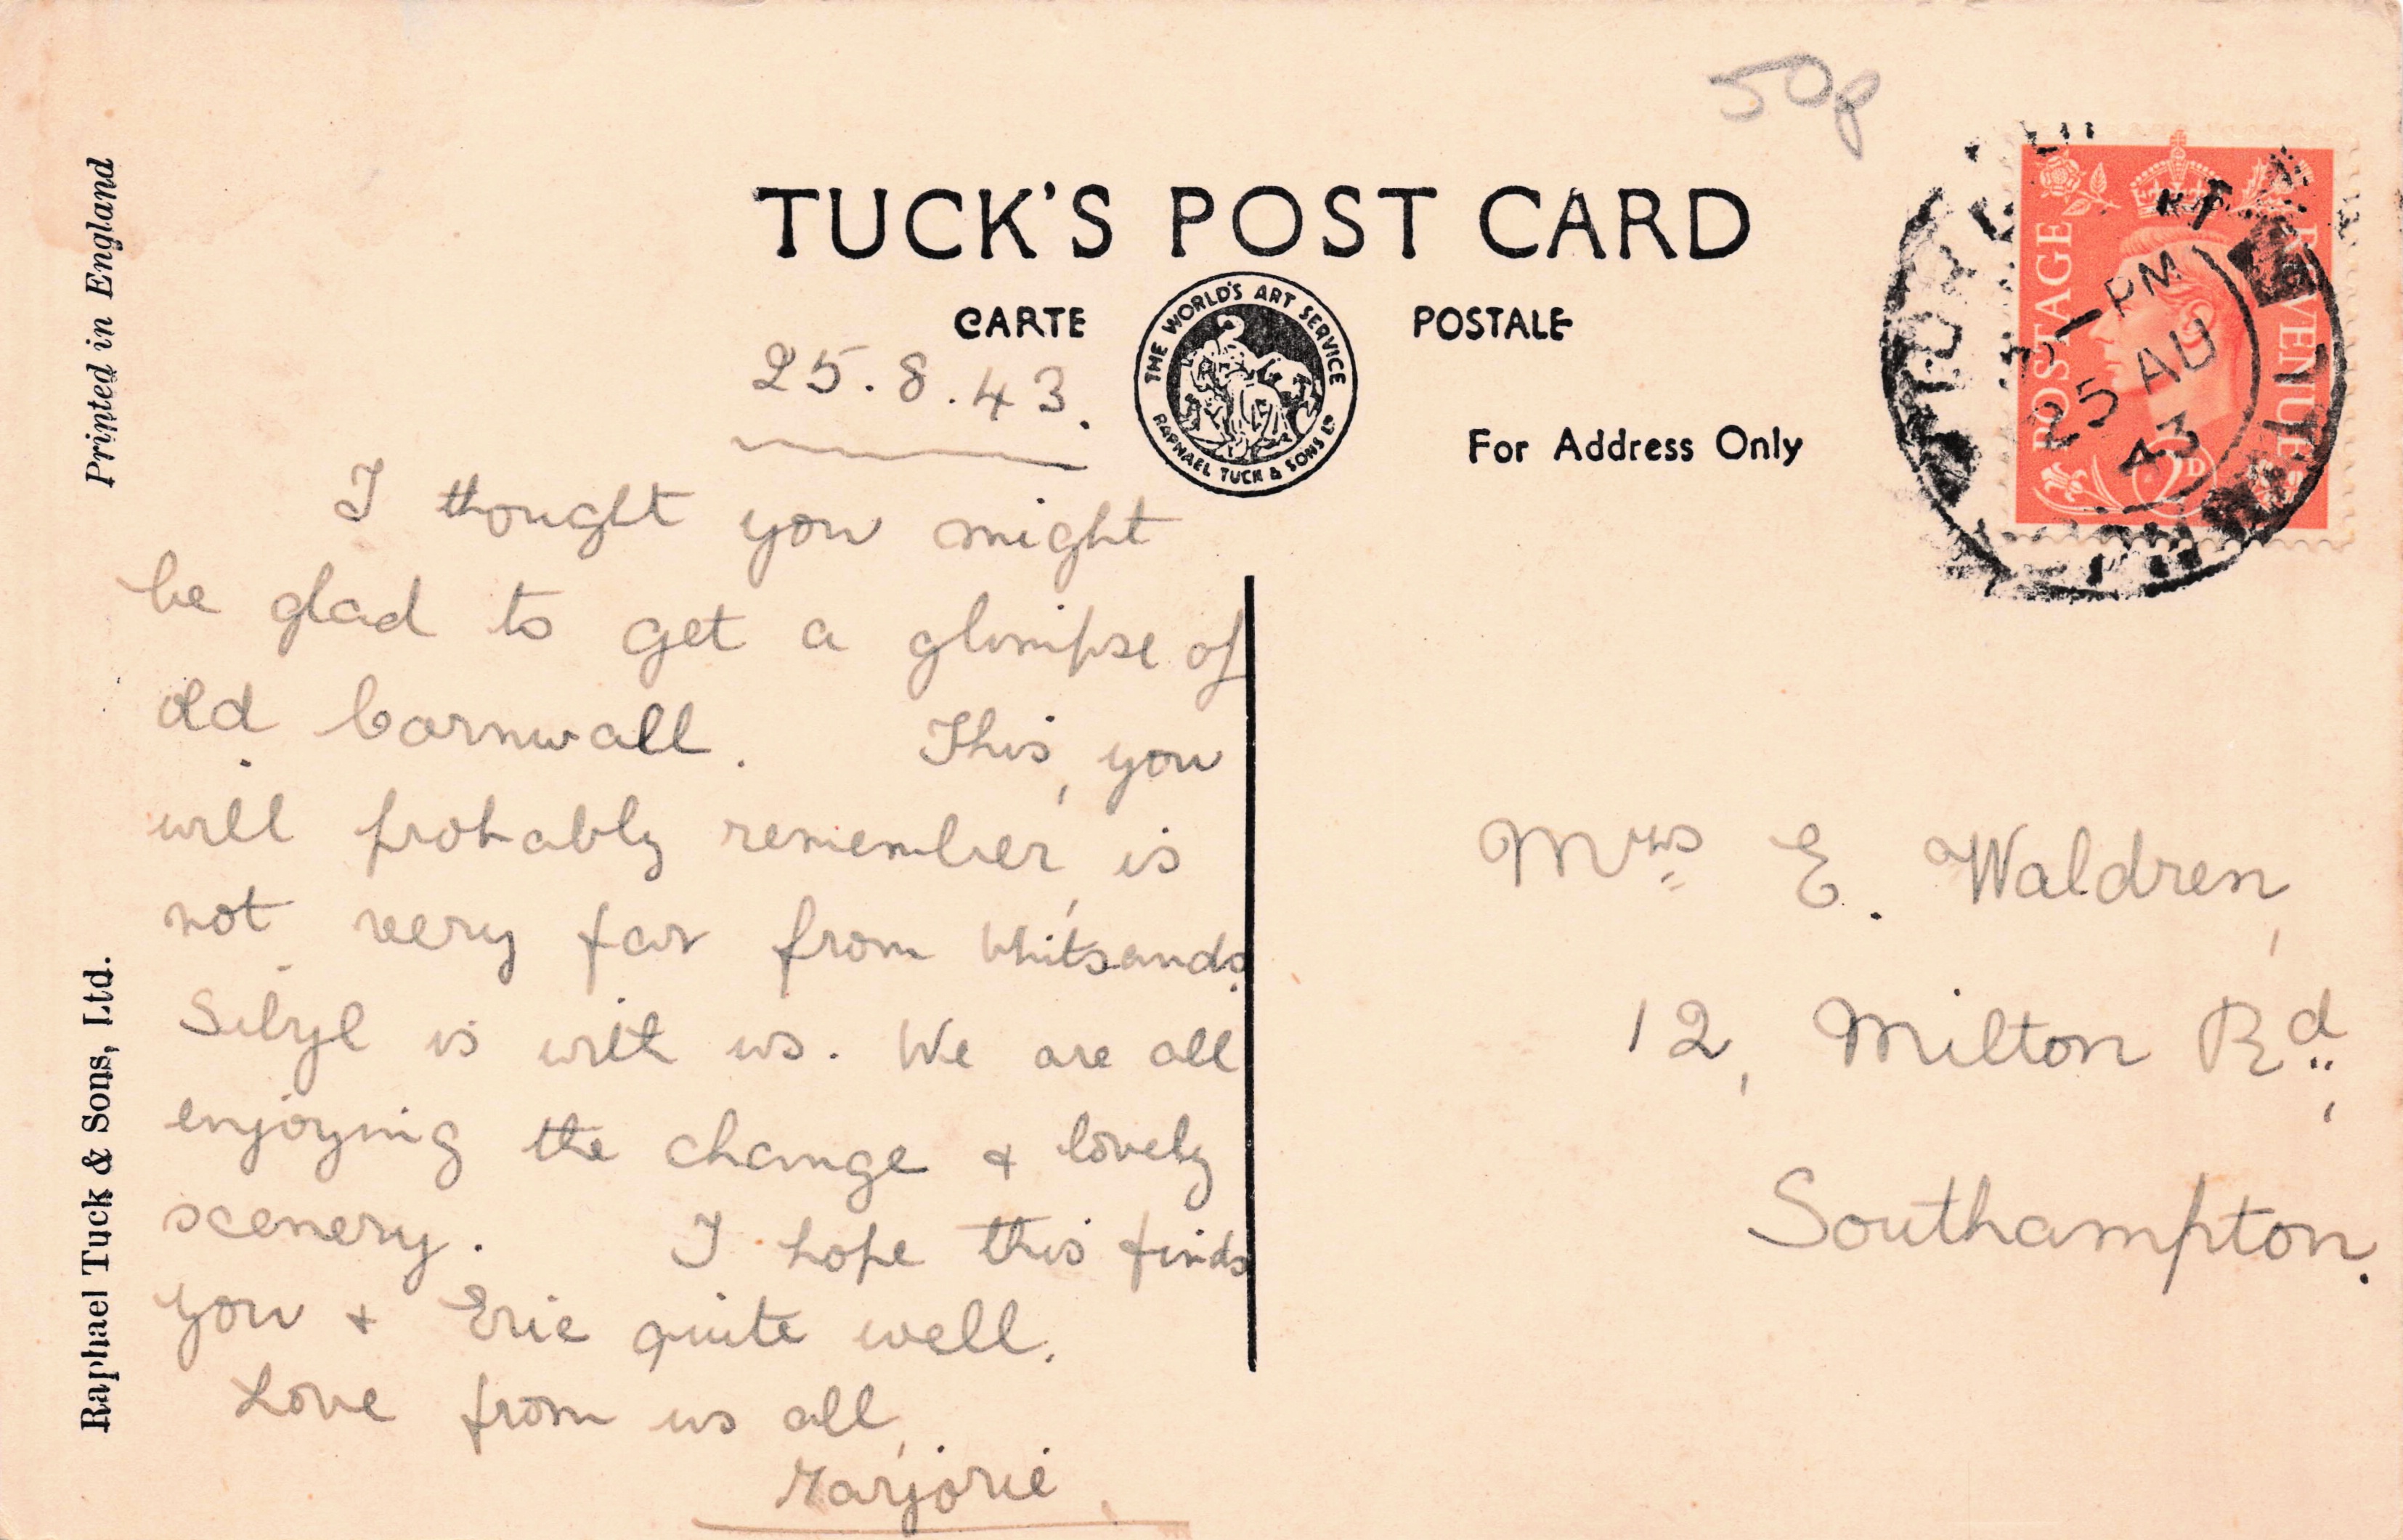 50p
TUCK'S POST CARD
CARTE POSTALE
THE WORLD'S ART SERVICE
RAPHAEL TUCK & SONS LD
For Address Only
Printed in England
Raphael Tuck & Sons, Ltd.
POSTAGE REVENUE
2D
1-PM
25 AU
43
25.8.43.
I thought you might
be glad to get a glimpse of
old Cornwall. This, you
will probably remember, is
not very far from Whitsands.
Sibyl is with us. We are all
enjoying the change & lovely
scenery. I hope this finds
you & Eric quite well.
Love from us all,
Marjorie.
Mrs E. Waldren,
12, Milton Rd,
Southampton.